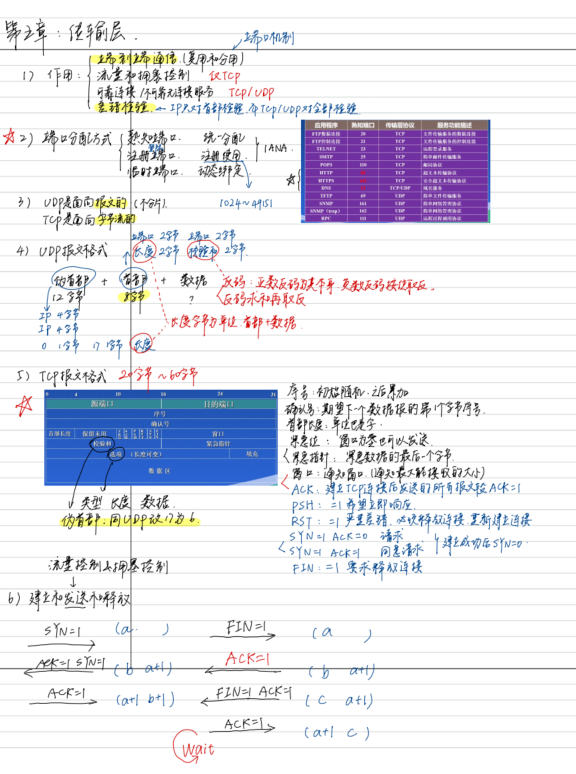 第三章：传输层
端口机制
端到端通信（复用和分用）
1) 作用： 流量和拥塞控制 仅TCP
可靠连接/不可靠无连接服务 TCP/UDP
差错检验 ← IP只对首部检验，而TCP/UDP对全部检验
☆2) 端口分配方式 熟知端口 统一分配 IANA
注册端口 注册使用
临时端口 动态绑定
1024~49151
应用程序 熟知端口 传输层协议 服务功能描述
FTP数据连接 20 TCP 文件传输服务的数据连接
FTP控制连接 21 TCP 文件传输服务的控制连接
TELNET 23 TCP 远程登录服务
SMTP 25 TCP 简单邮件传输服务
POP3 110 TCP 邮局协议
HTTP TCP 超文本传输协议
HTTPS TCP 安全超文本传输协议
DNS TCP/UDP 域名服务
TFTP 69 UDP 简单文件传输服务
SNMP 161 UDP 简单网络管理协议
SNMP (trap) 162 UDP 简单网络管理协议
RPC 111 UDP 远程过程调用协议
3) UDP是面向报文的（不合拆）
TCP是面向字节流的
4) UDP报文格式
端口 2字节 端口 2字节
长度 2字节 校验和 2字节
伪首部 + 首部 + 数据
12字节 8字节 ?
反码：正数反码为其本身，负数反码按位取反。
反码求和再取反
IP 4字节
IP 4字节
0 1字节 17 1字节 长度
长度字节为单位，首部+数据
5) TCP报文格式 20字节~60字节
☆
0 4 10 16 24 31
源端口 目的端口
序号
确认号
首部长度 保留未用 窗口
校验和 紧急指针
选项 (长度可变) 填充
数据区
类型 长度 数据
伪首部，同UDP 设17为6.
序号：初始随机，之后累加
确认号：期望下一个数据报的第1个字节序号.
首部长度：单位是字
紧急位： 窗口为零也可以发送
紧急指针： 紧急数据的最后一个字节.
窗口：通知窗口.（通知最大能接收的大小）
ACK：建立TCP连接后发送的所有报文段ACK=1
PSH： =1 希望立即响应.
RST： =1 严重差错，必须释放连接 重新建立连接
SYN=1 ACK=0 请求
SYN=1 ACK=1 同意请求
建立成功后SYN=0.
FIN： =1 要求释放连接
流量控制与拥塞控制
6) 建立和发送和释放
SYN=1 (a )
ACK=1 SYN=1 (b a+1)
ACK=1 (a+1 b+1)
FIN=1 (a )
ACK=1 (b a+1)
FIN=1 ACK=1 (c a+1)
ACK=1 (a+1 c)
wait